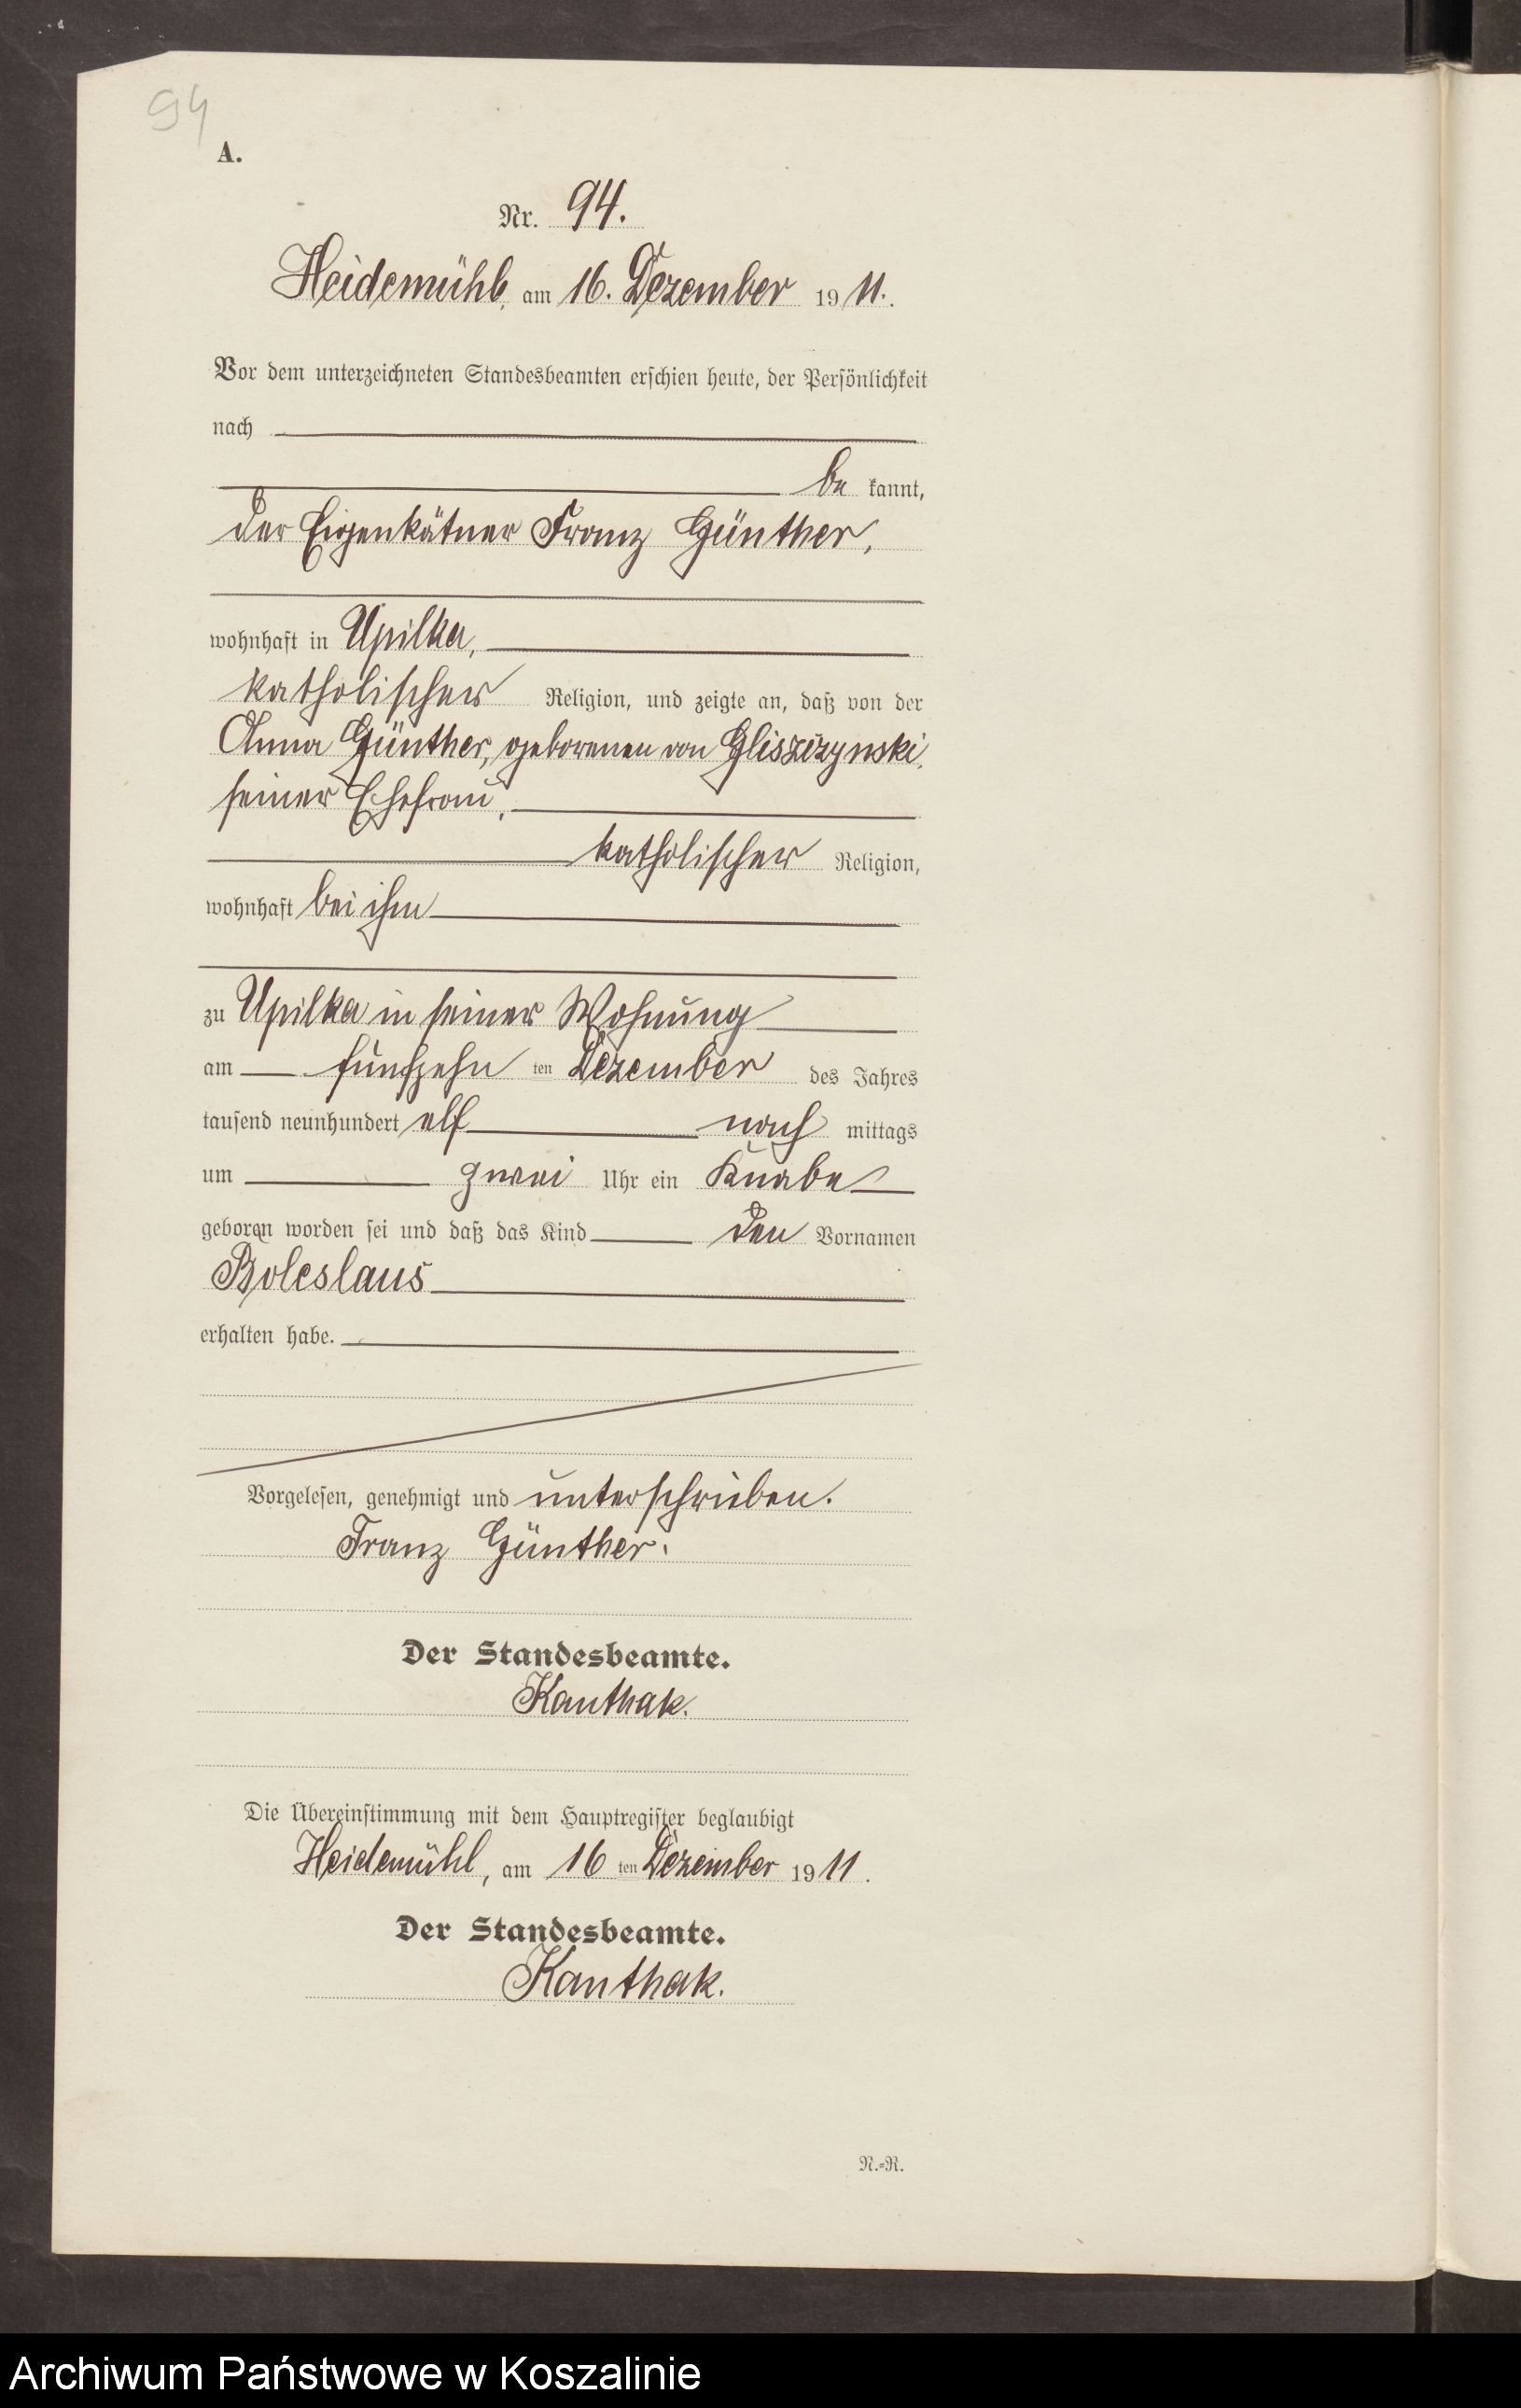 94
A.
Nr. 94.
Heidemühl, am 16. Dezember 1911.
Vor dem unterzeichneten Standesbeamten erschien heute, der Persönlichkeit
nach
be kannt,
der Eigenkätner Franz Günther,
wohnhaft in Upilka,
katholischer Religion, und zeigte an, daß von der
Anna Günther, geborenen von Gliszczynski,
seiner Ehefrau,
katholischer Religion,
wohnhaft bei ihm
zu Upilka in seiner Wohnung
am fünfzehn ten Dezember des Jahres
tausend neunhundert elf nach mittags
um zwei Uhr ein Knabe
geboren worden sei und daß das Kind den Vornamen
Boleslaus
erhalten habe.
Vorgelesen, genehmigt und unterschrieben.
Franz Günther.
Der Standesbeamte.
Kanthak.
Die Übereinstimmung mit dem Hauptregister beglaubigt
Heidemühl, am 16 ten Dezember 1911.
Der Standesbeamte.
Kanthak.
N.-R.
Archiwum Państwowe w Koszalinie